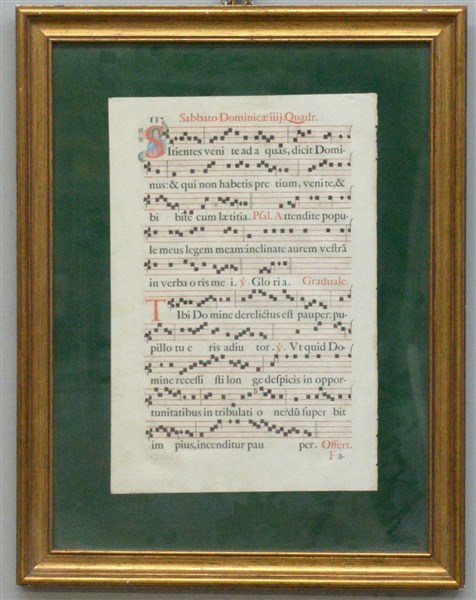 112 Sabbato Dominicæ iiij. Quadr.
SItientes veni te ad a quas, dicit Domi-
nus: & qui non habetis pre tium, venite, &
bi bite cum lætitia. Psal. Attendite popu-
le meus legem meam: inclinate aurem vestrā
in verba oris me i. ꝟ. Glo ria. Graduale.
TIbi Do mine derelictus est pauper: pu-
pillo tu e ris adiu tor. ꝟ. Vt quid Do-
mine recessi sti lon ge despicis in oppor-
tunitatibus in tribulati o ne? dū super bit
im pius, incenditur pau per. Offert.
Fa-